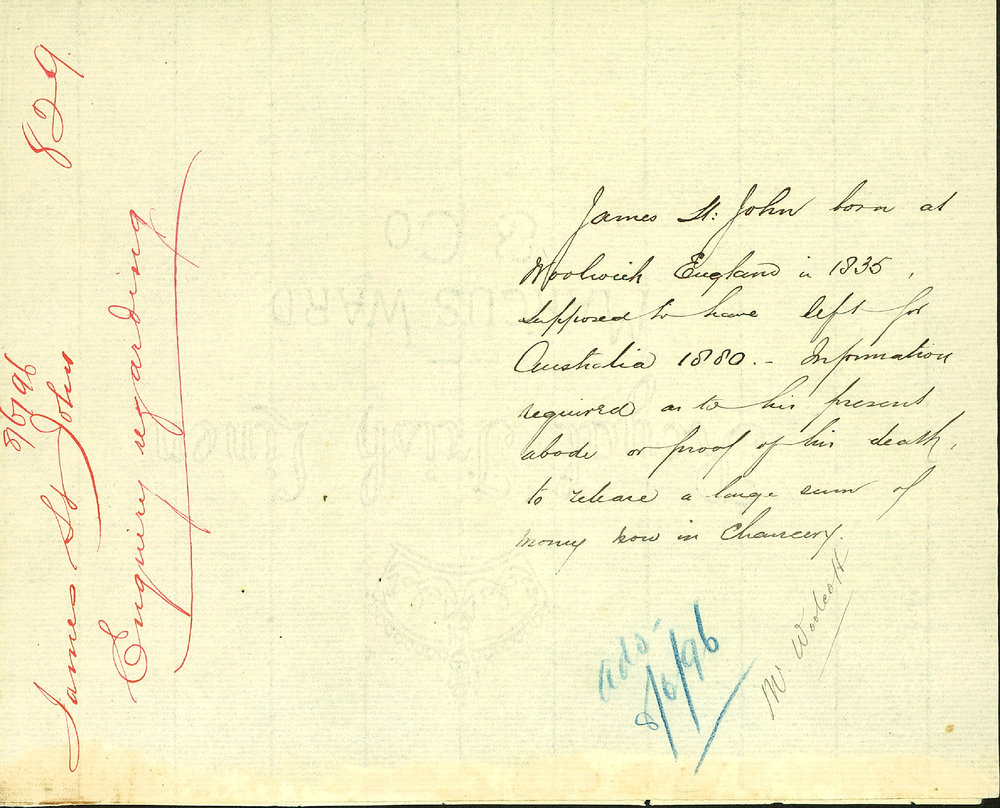 829
8/6/96
James St John
Enquiry regarding
James St. John born at
Woolwich England in 1835,
supposed to have left for
Australia 1880. - Information
required as to his present
abode or proof of his death,
to release a large sum of
money now in Chancery.
8/6/96
Mr Woolcott